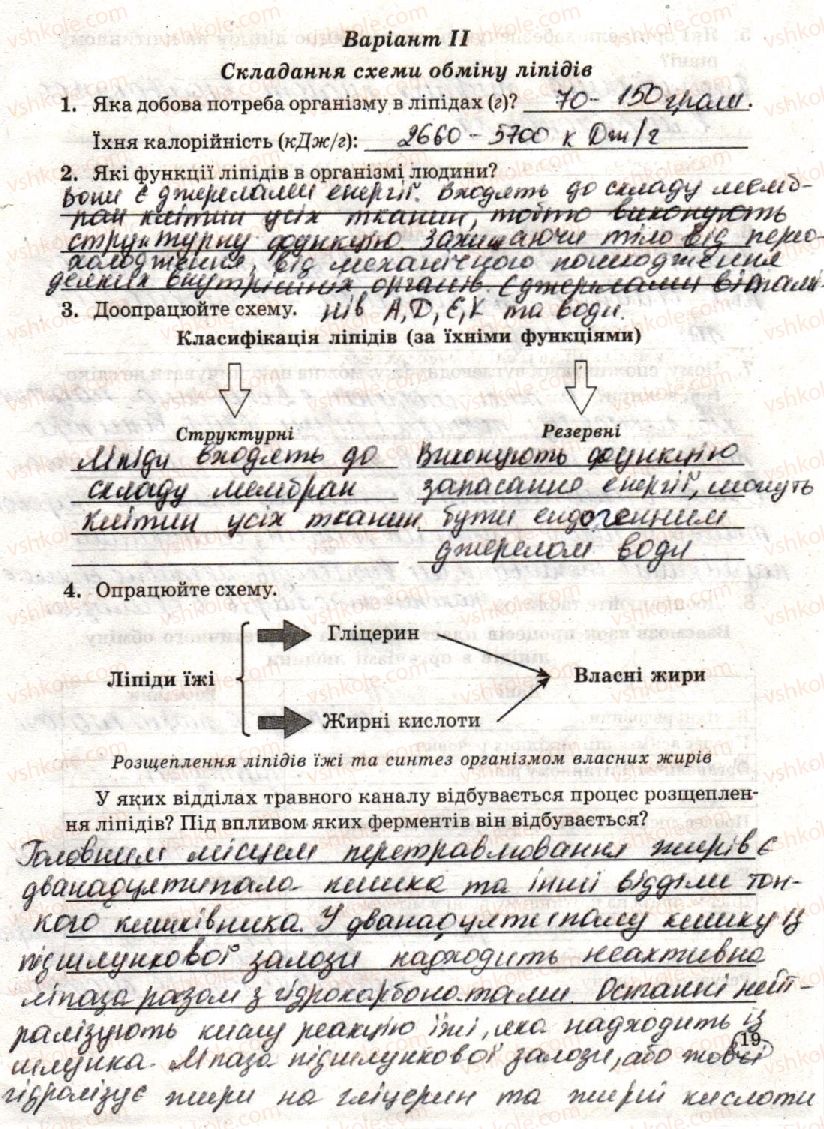 Варіант II
Складання схеми обміну ліпідів
1. Яка добова потреба організму в ліпідах (г)? 70 - 150 грам.
Їхня калорійність (кДж/г): 2660 - 5700 к Дж/г
2. Які функції ліпідів в організмі людини?
Вони є джерелами енергії. Входять до складу мемб-
ран клітин усіх тканин, тобто виконують
структурну функцію захищаючи тіло від перео-
холодження, від механічного пошкодження
деяких внутрішніх органів. Є джерелами вітамі-
3. Доопрацюйте схему. нів А, D, Е, К та води.
Класифікація ліпідів (за їхніми функціями)
Структурні
Резервні
Ліпіди входять до
складу мембран
клітин усіх тканин
Виконують функцію
запасання енергії, можуть
бути ендогенним
джерелом води
4. Опрацюйте схему.
Ліпіди їжі
Гліцерин
Жирні кислоти
Власні жири
Розщеплення ліпідів їжі та синтез організмом власних жирів
У яких відділах травного каналу відбувається процес розщеплен-
ня ліпідів? Під впливом яких ферментів він відбувається?
Головним місцем перетравлювання жирів є
дванадцятипала кишка та інші відділи тон-
кого кишківника. У дванадцятипалу кишку із
підшлункової залози надходить неактивна
ліпаза разом з гідрокарбонатами. Останні нейт-
ралізують кислу реакцію їжі, яка надходить із
шлунка. Ліпаза підшлункової залози, або жовчі
гідролізує жири на гліцерин та жирні кислоти
19
vshkole.com